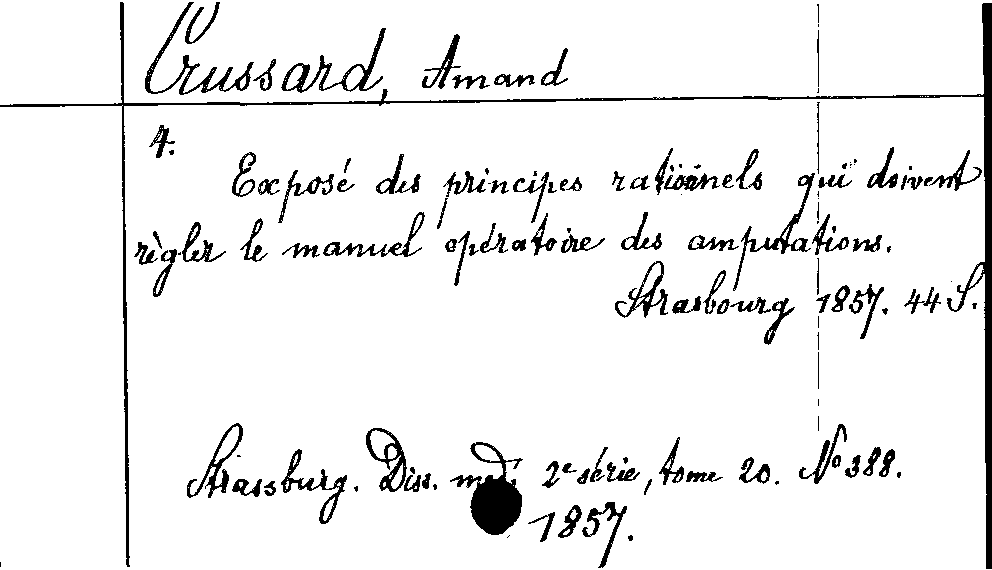 Crussard, Amand
4.
Exposé des principes rationnels qui doivent
règler le manuel opératoire des amputations.
Strasbourg 1857. 44 S.
Strassburg. Diss. med. 2e série, tome 20. No 388.
1857.